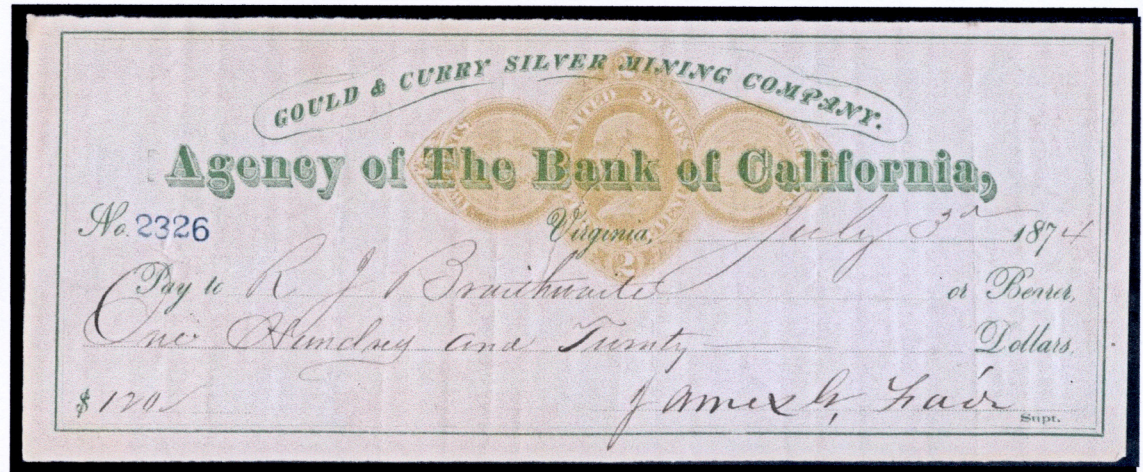 GOULD & CURRY SILVER MINING COMPANY.
Agency of The Bank of California,
No. 2326 Virginia, July 3d 1874
Pay to R J Braithwaite or Bearer,
One Hundred and Twenty Dollars.
$ 120 James G. Fair
Supt.
UNITED STATES
2